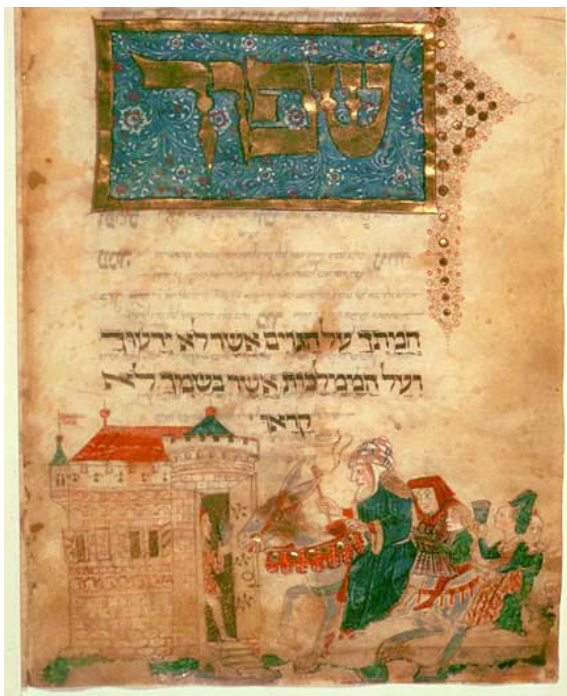 שפך
חמתך על הגוים אשר לא ידעוך
ועל הממלכות אשר בשמך לא
קראו